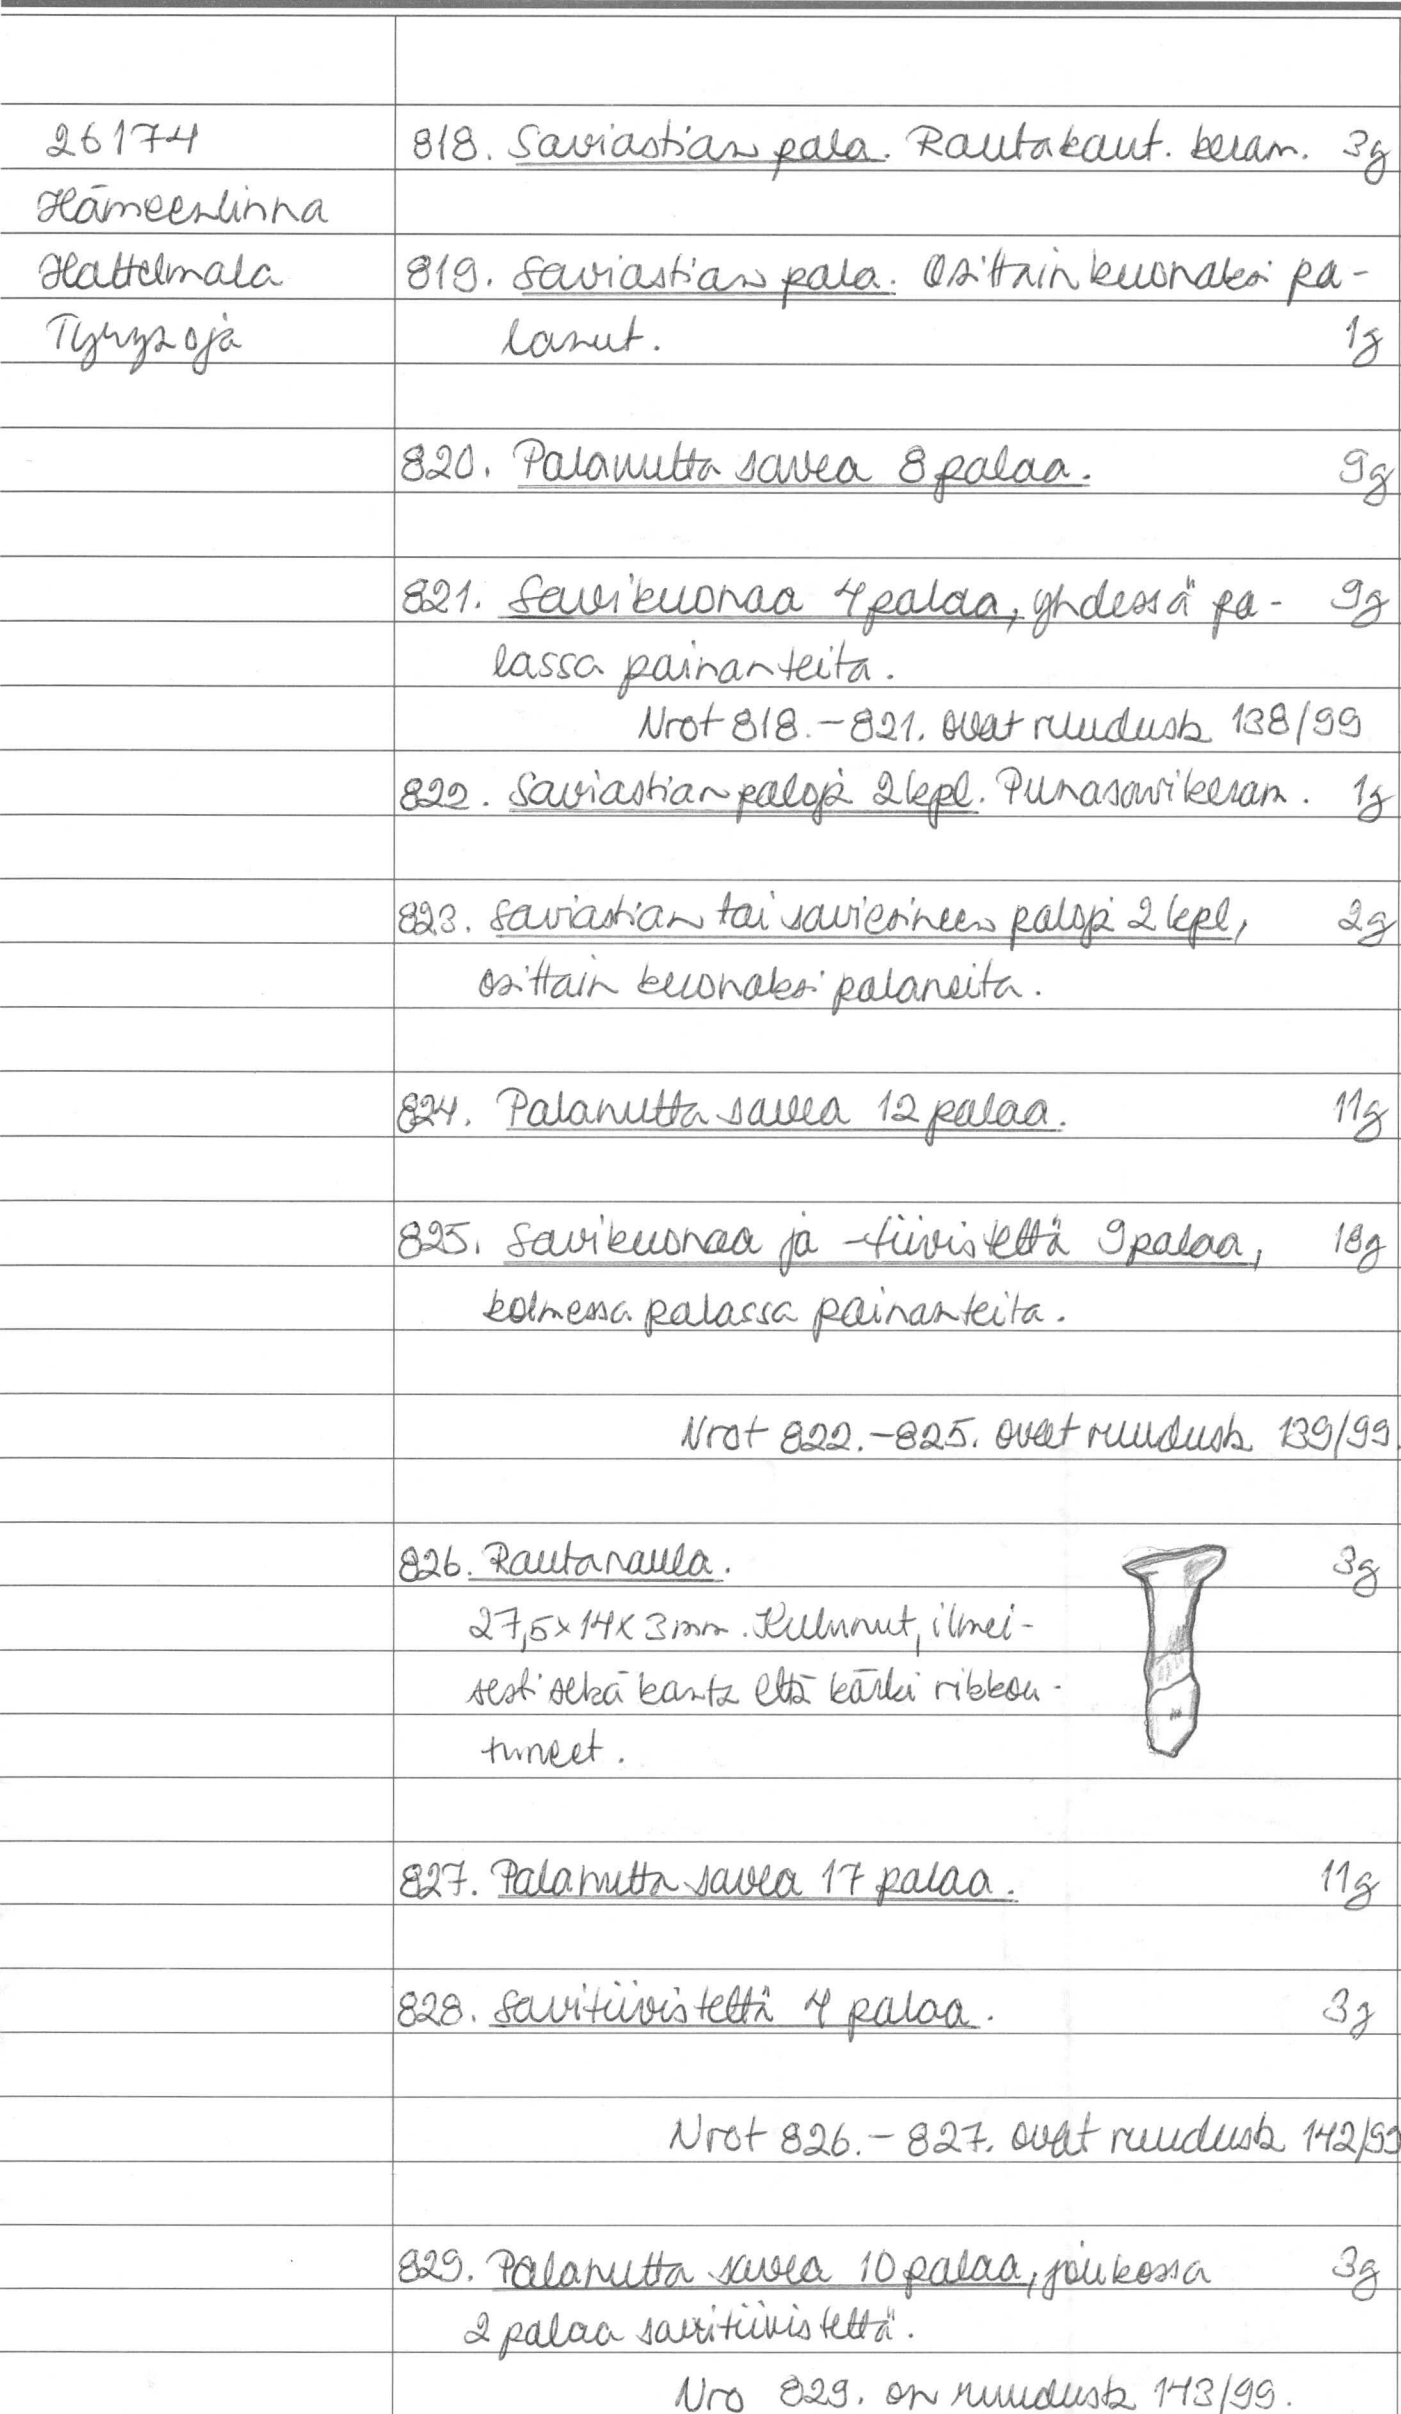 26174
Hämeenlinna
Hattelmala
Tyrynoja
818. Saviastian pala. Rautakaut. keram. 3g
819. Saviastian pala. Osittain kuonaksi pa-
lanut. 1g
820. Palanutta savea 8 palaa. 9g
821. Savikuonaa 4 palaa, yhdessä pa- 9g
lassa painanteita.
Nrot 818.-821. ovat ruudusta 138/99
822. Saviastian paloja 2 kpl. Punasavikeram. 1g
823. Saviastian tai saviesineen paloja 2 kpl, 2g
osittain kuonaksi palaneita.
824. Palanutta savea 12 palaa. 11g
825. Savikuonaa ja -tiivistettä 9 palaa, 18g
kolmessa palassa painanteita.
Nrot 822.-825. ovat ruudusta 139/99
826. Rautanaula. 3g
27,5x14x3mm. Kulunut, ilmei-
sesti sekä kanta että kärki rikkou-
tuneet.
827. Palanutta savea 17 palaa. 11g
828. Savitiivistettä 4 palaa. 3g
Nrot 826.-827. ovat ruudusta 142/99
829. Palanutta savea 10 palaa, joukossa 3g
2 palaa savitiivistettä.
Nro 829. on ruudusta 143/99.